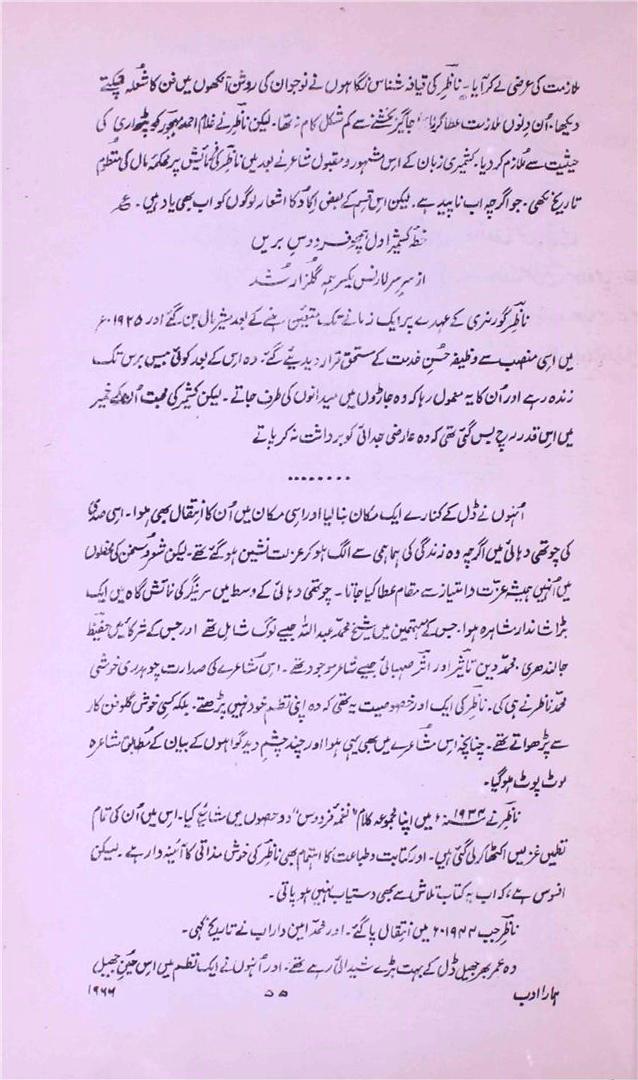 ملازمت کی عرضی لے کر آیا۔ ناظرؔ کی قیافہ شناس نگاہوں نے نوجوان کی روشن آنکھوں میں فن کا شعلہ لپکتے
دیکھا، اُن دِنوں ملازمت عطا کرنا جاگیر بخشنے سے کم شکل کام نہ تھا۔ لیکن ناظرؔ نے غلام احمد مہجورؔ کو پٹواری کی
حیثیت سے مُلازم کر دیا۔ کشمیری زبان کے اس مشہور و مقبول شاعر نے بعد میں ناظرؔ کی فرمائش پر محکمہ مال کی منظوم
تاریخ لکھی۔ جو اگرچہ اب ناپید ہے۔ لیکن اس قسم کے بعض اِکا دُکا اشعار لوگوں کو اب بھی یاد ہیں۔ ؎
خطہ کشمیر اول ہمچو فردوسِ بریں
از سرِ سر لارنس یکسر ہمہ گلزار شُد
ناظرؔ گورنری کے عہدے پر ایک زمانے تک متعین رہنے کے بعد مشیرِ مال بن گئے اور ۱۹۲۵ء
میں اسی منصب سے وظیفہ حسنِ خدمت کے مستحق قرار دیدیئے گئے۔ وہ اس کے بعد کوئی بیس برس تک
زندہ رہے اور اُن کا یہ معمول رہا کہ وہ جاڑوں میں میدانوں کی طرف جاتے۔ لیکن کشمیر کی محبت اُن کے خمیر
میں اس قدر رچ بس گئی تھی کہ وہ عارضی جدائی کو برداشت نہ کر پاتے
........
اُنہوں نے ڈل کے کنارے ایک مکان بنا لیا اور اسی مکان میں اُن کا اِنتقال بھی ہوا۔ اسی صدی
کی چوتھی دہائی میں اگرچہ وہ زندگی کی ہماہمی سے الگ ہو کر عزلت نشین ہو گئے تھے۔ لیکن شعر و سخن کی محفلوں
میں اُنہیں ہمیشہ عزت و امتیاز سے مقام عطا کیا جاتا۔ چوتھی دہائی کے وسط میں سرینگر کی نمائش گاہ میں ایک
بڑا شاندار مشاعرہ ہوا، جس کے مہتمین میں شیخ محمد عبداللہ جیسے لوگ شامل تھے اور جس کے شرکا میں حفیظؔ
جالندھری، محمد دین تاثیرؔ اور اثرؔ صہبائی جیسے شاعر موجود تھے۔ اِس مُشاعرے کی صدارت چودہری خوشی
محمد ناظر نے ہی کی۔ ناظرؔ کی ایک اور خصوصیت یہ تھی کہ وہ اپنی نظم خود نہیں پڑھتے۔ بلکہ کسی خوش گلو فن کار
سے پڑھواتے تھے۔ چنانچہ اس مُشاعرے میں بھی یہی ہوا اور چند چشم دید گواہوں کے بیان کے مُطابق مشاعرہ
لوٹ پوٹ ہو گیا۔
ناظرؔ نے ۱۹۳۴ء میں اپنا مجموعہ کلام "نغمہ فردوس" دو حصوں میں شائع کیا۔ اس میں اُن کی تمام
نظمیں غزلیں اکٹھا کر لی گئی ہیں۔ اور کتابت و طباعت کا اہتمام بھی ناظرؔ کی خوش مذاقی کا آئینہ دار ہے۔ لیکن
افسوس ہے کہ اب یہ کتاب تلاش سے بھی دستیاب نہیں ہو پاتی۔
ناظرؔ جب ۱۹۴۴ء میں اِنتقال پا گئے۔ اور محمد امین داراب نے تاریخ کہی۔
وہ عمر بھر جھیل ڈل کے بہت بڑے شیدائی رہے تھے۔ اور اُنہوں نے ایک نظم میں اس حسین جھیل
ہمارا ادب
۵۵
۱۹۶۶